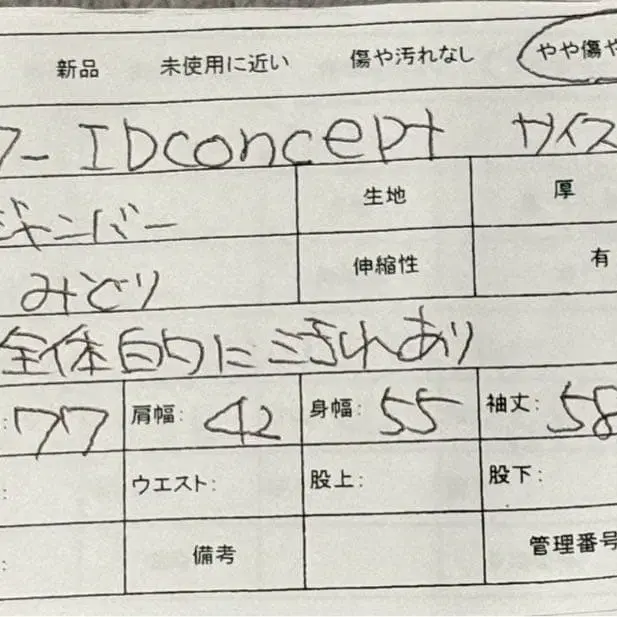 新品 未使用に近い 傷や汚れなし やや傷や
ワー IDconcept サイズ
ジャンバー 生地 厚
みどり 伸縮性 有
全体的に汚れあり
: 77 肩幅: 42 身幅: 55 袖丈: 58
: ウエスト: 股上: 股下:
: 備考 管理番号